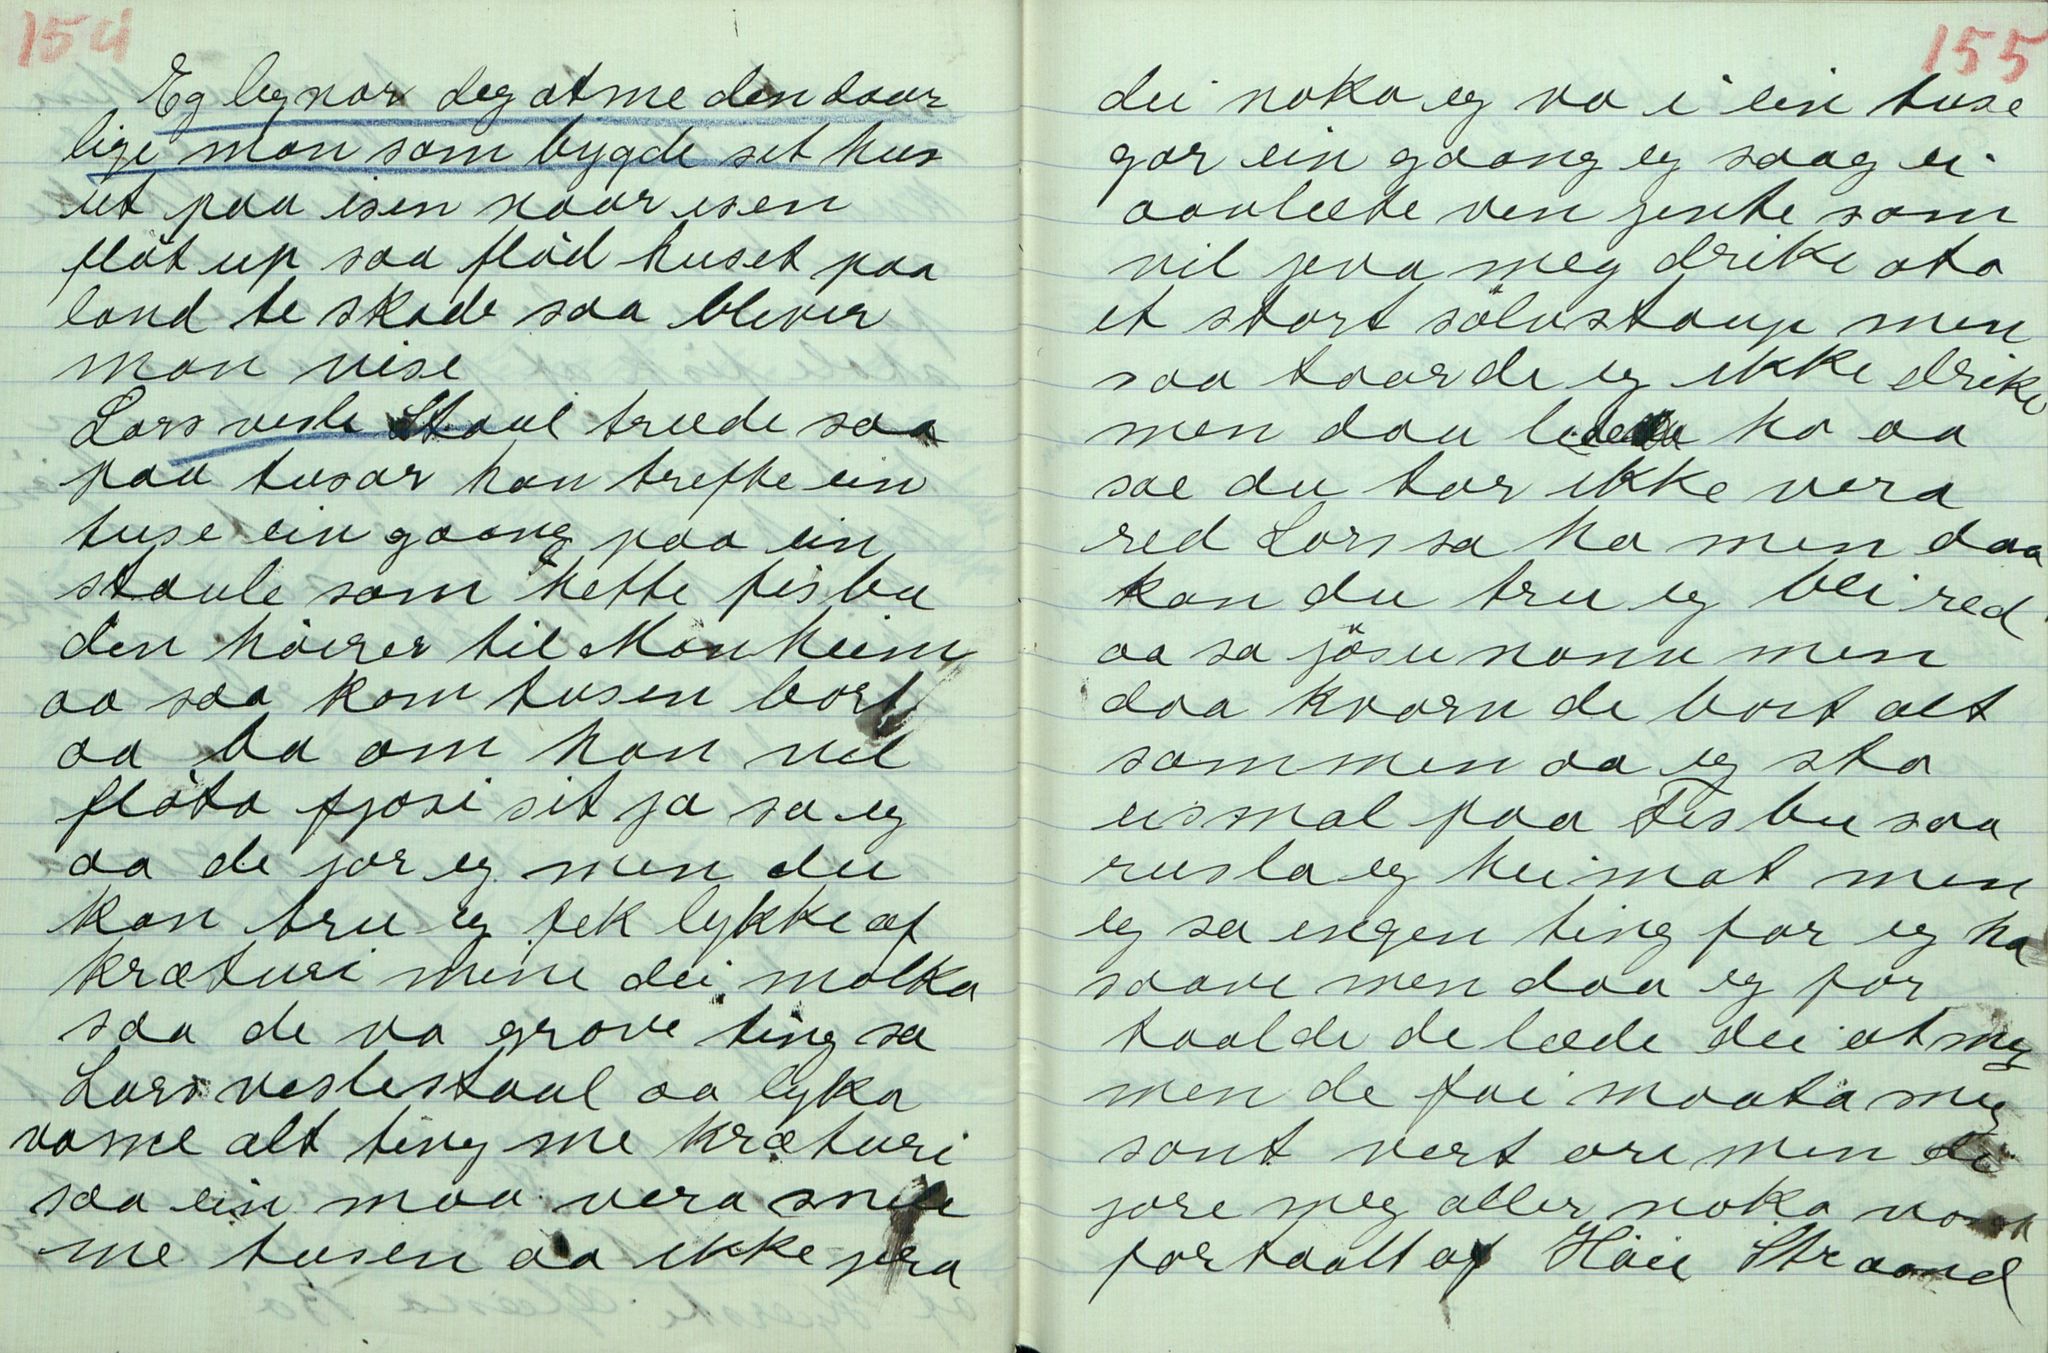 154
Eg lignar deg at me den daar
lige man som bygde set hus
ut paa isen naar isen
flöt up saa flöd huset paa
land te skade saa blever
man vise
Lars vesle Staul trude saa
paa tusar han trefte ein
tuse ein gaang paa ein
staule som hette fisbu
den höirer til Manheim
aa saa kom tusen bort
aa ba om han vil
flöta fjosi sit ja sa eg
aa de jor eg men du
kan tru eg fek lykke af
kræturi mine dei malka
saa de va grove ting sa
Lars veslestaul aa lyka
va me alt ting me kræturi
saa ein maa vera snile
me tusen aa ikke jera
155
dei noka eg va i ein tuse
gar ein gaang eg saag ei
aavlæte ven jente som
vil jeva meg drike ata
et stort sölvstaup men
saa taarde eg ikke drike
men daa ho aa
sae du tar ikke vera
red Lars sa ho men daa
kan du tru eg blei red
aa sa jösu nanu men
daa kvarn de bort alt
sammen aa eg sto
eismal paa Fisbu saa
rusla eg heimat men
eg sa engen ting for eg ha
saave men daa eg for
taalde de læde dei at meg
men de fai maata meg
sant vert are men dei
jore meg aller noka vondt
fortaalt af Håie Straand